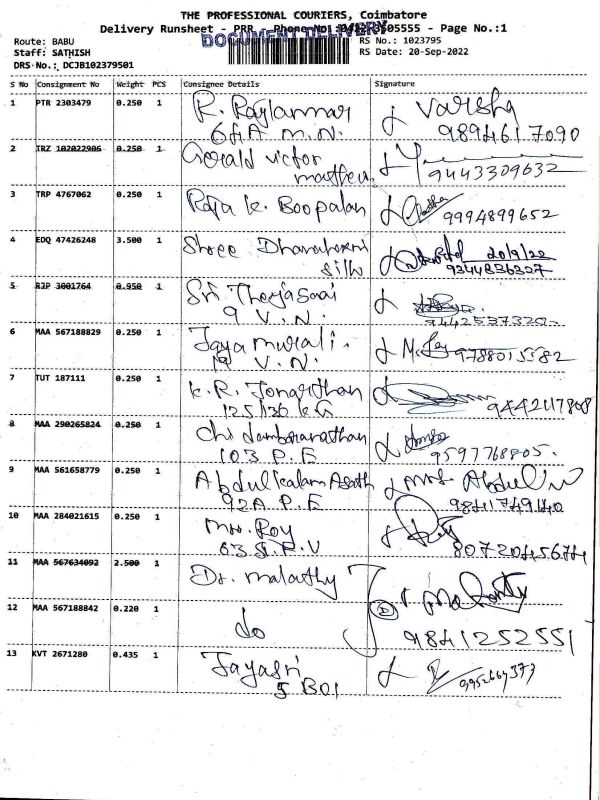 THE PROFESSIONAL COURIERS, Coimbatore
Delivery Runsheet - PRR - Phone No: 5505555 - Page No.:1
DOCUMENT DELIVERY
Route: BABU
RS No.: 1023795
Staff: SATHISH
RS Date: 20-Sep-2022
DRS No.: DCJB102379501
S No Consignment No Weight PCS Consignee Details Signature
1 PTR 2303479 0.250 1 R. Rajammar Varsha
64A M.N. 9894617090
2 IRZ 102022906 0.250 1 Gerald victor
mathew 9443309632
3 TRP 4767062 0.250 1 Raja K. Boopalan 9994899652
4 EDQ 47426248 3.500 1 Shree Dhanalaxmi 20/9/22
silk 9344836327
5 RJP 3001764 0.950 1 Sri Thejasaai
9 V.N. 9442537320
6 MAA 567188829 0.250 1 Jayamurali.
19 V.N. 9788015582
7 TUT 187111 0.250 1 K.R. Jonarthan
125/130 K.G 9442117808
8 MAA 290265824 0.250 1 Chidambaranathan
103 P.E 9597768805.
9 MAA 561658779 0.250 1 Abdulkalam Asath Mrs Abdul
92A P.E 9841749140
10 MAA 284021615 0.250 1 Mrs. Roy
63 S.R.V 8072045674
11 MAA 567634092 2.500 1 Dr. Malathy
12 MAA 567188842 0.220 1 do
9841252551
13 KVT 2671280 0.435 1 Jayasri
5 B01 9952669373